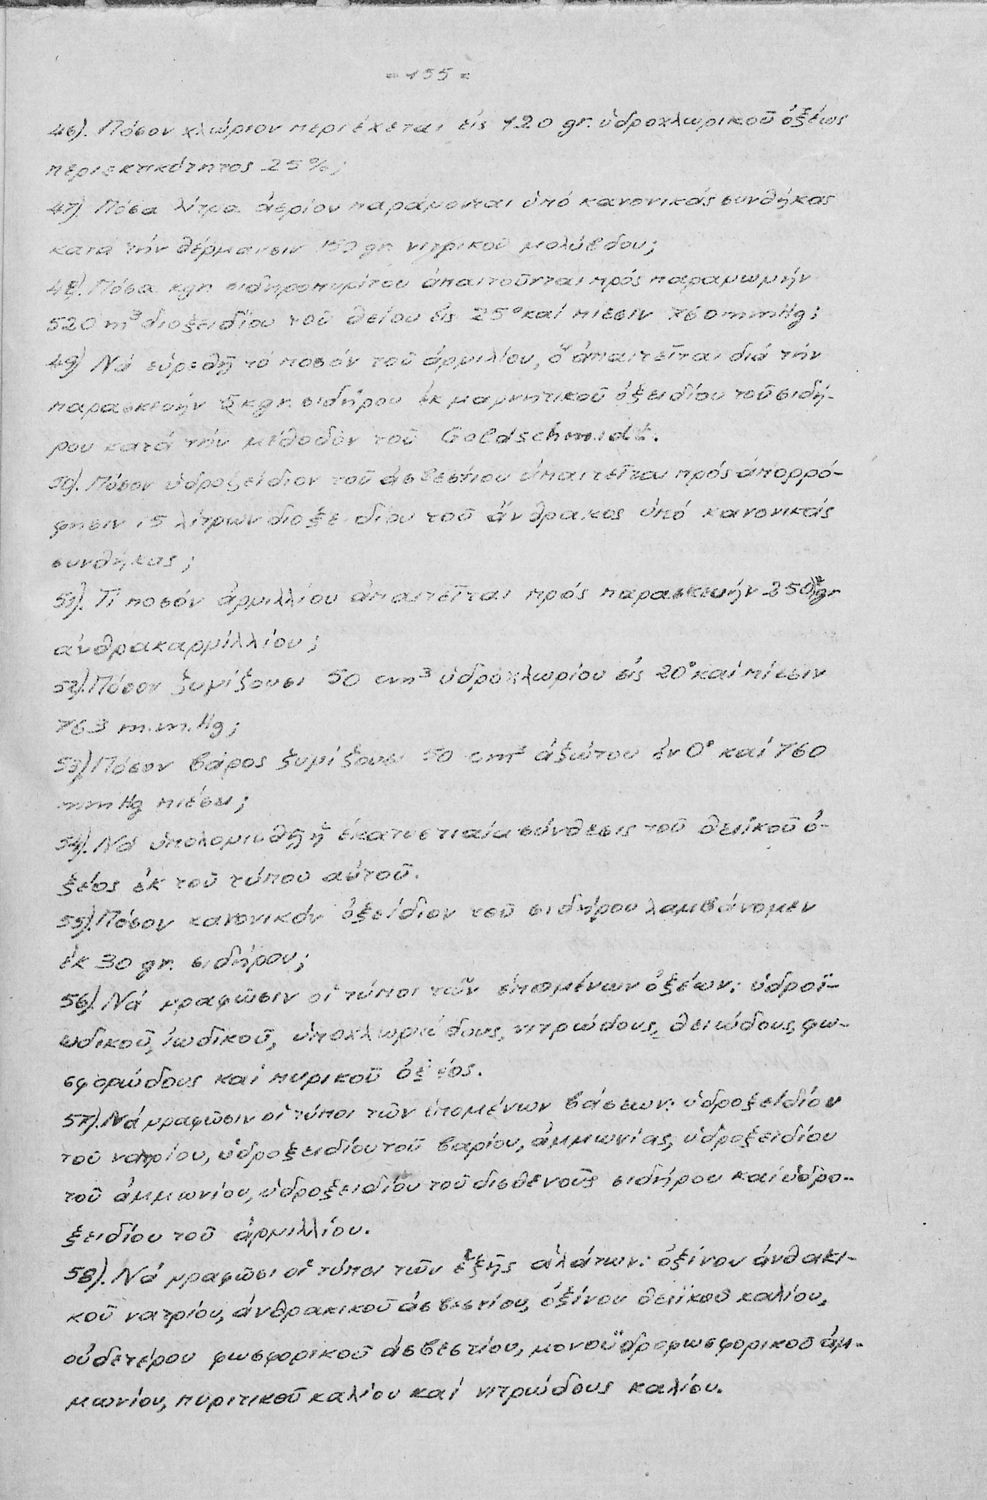 = 155 =
46). Πόσον χλώριον περιέχεται εἰς 120 gr. ὑδροχλωρικοῦ ὀξέως
περιεκτικότητος 25%;
47) Πόσα λίτρα ἀερίου παράγονται ὑπό κανονικάς συνθήκας
κατά τήν θέρμανσιν 150 gr. νιτρικοῦ μολύβδου;
48). Πόσα kgr. σιδηροπυρίτου ἀπαιτοῦνται πρός παραγωγήν
520 m³ διοξειδίου τοῦ θείου εἰς 25° καί πίεσιν 760 mm Hg;
49) Νά εὑρεθῇ τό ποσόν τοῦ ἀργιλίου, ὅ ἀπαιτεῖται διά τήν
παρασκευήν 5 kgr. σιδήρου ἐκ μαγνητικοῦ ὀξειδίου τοῦ σιδή-
ρου κατά τήν μέθοδον τοῦ Goldschmidt.
50). Πόσον ὑδροξείδιον τοῦ ἀσβεστίου ἀπαιτεῖται πρός ἀπορρό-
φησιν 15 λίτρων διοξειδίου τοῦ ἄνθρακος ὑπό κανονικάς
συνθήκας;
51). Τί ποσόν ἀργιλλίου ἀπαιτεῖται πρός παρασκευήν 250 gr
ἀνθρακαργιλλίου;
52). Πόσον ζυγίζουσι 50 cm³ ὑδροχλωρίου εἰς 20° καί πίεσιν
763 m.m. Hg;
53) Πόσον βάρος ζυγίζουσι 50 cm³ ἀζώτου ἐν 0° καί 760
mm Hg πιέσει;
54). Νά ὑπολογισθῇ ἡ ἑκατοστιαία σύνθεσις τοῦ θειϊκοῦ ὀ-
ξέος ἐκ τοῦ τύπου αὐτοῦ.
55). Πόσον κανονικόν ὀξείδιον τοῦ σιδήρου λαμβάνομεν
ἐκ 30 gr. σιδήρου;
56). Νά γραφῶσιν οἱ τύποι τῶν ἑπομένων ὀξέων: ὑδροϊ-
ωδικοῦ, ἰωδικοῦ, ὑποχλωριώδους, νιτρώδους, θειώδους, φω-
σφορώδους καί πυρικοῦ ὀξέος.
57). Νά γραφῶσιν οἱ τύποι τῶν ἑπομένων βάσεων: ὑδροξειδίου
τοῦ νατρίου, ὑδροξειδίου τοῦ βαρίου, ἀμμωνίας, ὑδροξειδίου
τοῦ ἀμμωνίου, ὑδροξειδίου τοῦ δισθενοῦς σιδήρου καί ὑδρο-
ξειδίου τοῦ ἀργιλλίου.
58). Νά γραφῶσι οἱ τύποι τῶν ἑξῆς ἁλάτων: ὀξίνου ἀνθακι-
κοῦ νατρίου, ἀνθρακικοῦ ἀσβεστίου, ὀξίνου θειϊκοῦ καλίου,
οὐδετέρου φωσφορικοῦ ἀσβεστίου, μονοϋδροφωσφορικοῦ ἀμ-
μωνίου, πυριτικοῦ καλίου καί νιτρώδους καλίου.